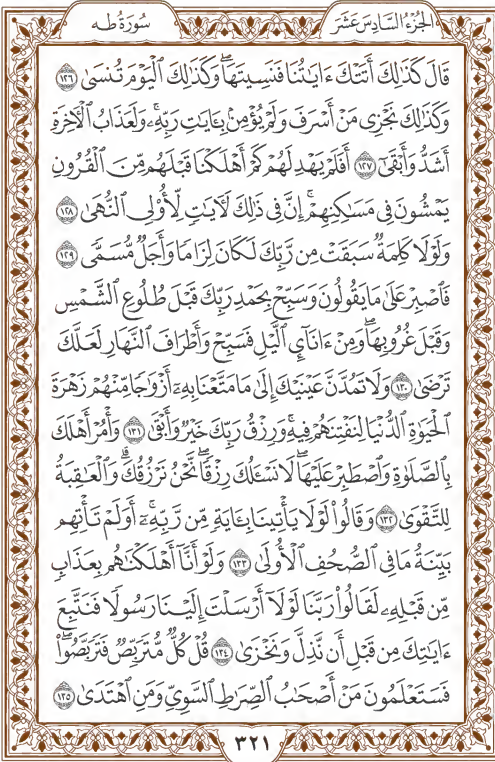 سُورَةُ طه
الجُزْءُ السَّادِسَ عَشَرَ
قَالَ كَذَٰلِكَ أَتَتْكَ ءَايَٰتُنَا فَنَسِيتَهَاۖ وَكَذَٰلِكَ ٱلْيَوْمَ تُنسَىٰ ١٢٦
وَكَذَٰلِكَ نَجْزِى مَنْ أَسْرَفَ وَلَمْ يُؤْمِنۢ بِـَٔايَٰتِ رَبِّهِۦۚ وَلَعَذَابُ ٱلْأَخِرَةِ
أَشَدُّ وَأَبْقَىٰٓ ١٢٧ أَفَلَمْ يَهْدِ لَهُمْ كَمْ أَهْلَكْنَا قَبْلَهُم مِّنَ ٱلْقُرُونِ
يَمْشُونَ فِى مَسَٰكِنِهِمْۗ إِنَّ فِى ذَٰلِكَ لَأٓيَٰتٍ لِّأُو۟لِى ٱلنُّهَىٰ ١٢٨
وَلَوْلَا كَلِمَةٌ سَبَقَتْ مِن رَّبِّكَ لَكَانَ لِزَامًا وَأَجَلٌ مُّسَمًّى ١٢٩
فَٱصْبِرْ عَلَىٰ مَا يَقُولُونَ وَسَبِّحْ بِحَمْدِ رَبِّكَ قَبْلَ طُلُوعِ ٱلشَّمْسِ
وَقَبْلَ غُرُوبِهَاۖ وَمِنْ ءَانَآئِ ٱلَّيْلِ فَسَبِّحْ وَأَطْرَافَ ٱلنَّهَارِ لَعَلَّكَ
تَرْضَىٰ ١٣٠ وَلَا تَمُدَّنَّ عَيْنَيْكَ إِلَىٰ مَا مَتَّعْنَا بِهِۦٓ أَزْوَٰجًا مِّنْهُمْ زَهْرَةَ
ٱلْحَيَوٰةِ ٱلدُّنْيَا لِنَفْتِنَهُمْ فِيهِۚ وَرِزْقُ رَبِّكَ خَيْرٌ وَأَبْقَىٰ ١٣١ وَأْمُرْ أَهْلَكَ
بِٱلصَّلَوٰةِ وَٱصْطَبِرْ عَلَيْهَاۖ لَا نَسْـَٔلُكَ رِزْقًاۖ نَّحْنُ نَرْزُقُكَۗ وَٱلْعَٰقِبَةُ
لِلتَّقْوَىٰ ١٣٢ وَقَالُوا۟ لَوْلَا يَأْتِينَا بِـَٔايَةٍ مِّن رَّبِّهِۦٓۚ أَوَلَمْ تَأْتِهِم
بَيِّنَةُ مَا فِى ٱلصُّحُفِ ٱلْأُولَىٰ ١٣٣ وَلَوْ أَنَّآ أَهْلَكْنَٰهُم بِعَذَابٍ
مِّن قَبْلِهِۦ لَقَالُوا۟ رَبَّنَا لَوْلَآ أَرْسَلْتَ إِلَيْنَا رَسُولًا فَنَتَّبِعَ
ءَايَٰتِكَ مِن قَبْلِ أَن نَّذِلَّ وَنَخْزَىٰ ١٣٤ قُلْ كُلٌّ مُّتَرَبِّصٌ فَتَرَبَّصُوا۟ۖ
فَسَتَعْلَمُونَ مَنْ أَصْحَٰبُ ٱلصِّرَٰطِ ٱلسَّوِىِّ وَمَنِ ٱهْتَدَىٰ ١٣٥
٣٢١